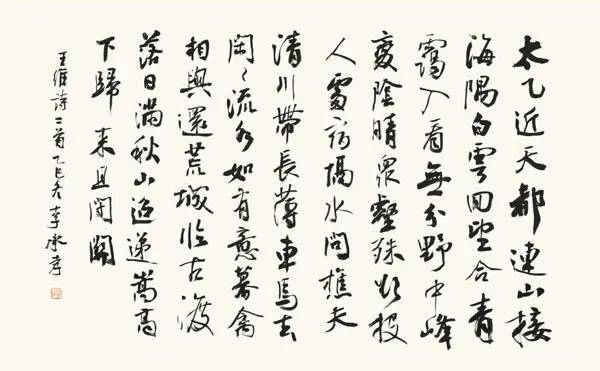 太乙近天都連山接
海隅白雲回望合青
靄入看無分野中峰
變陰晴眾壑殊欲投
人處宿隔水問樵夫
清川帶長薄車馬去
閑〻流水如有意暮禽
相與還荒城臨古渡
落日滿秋山迢遞嵩高
下歸來且閉關
王維詩二首乙巳冬李承孝